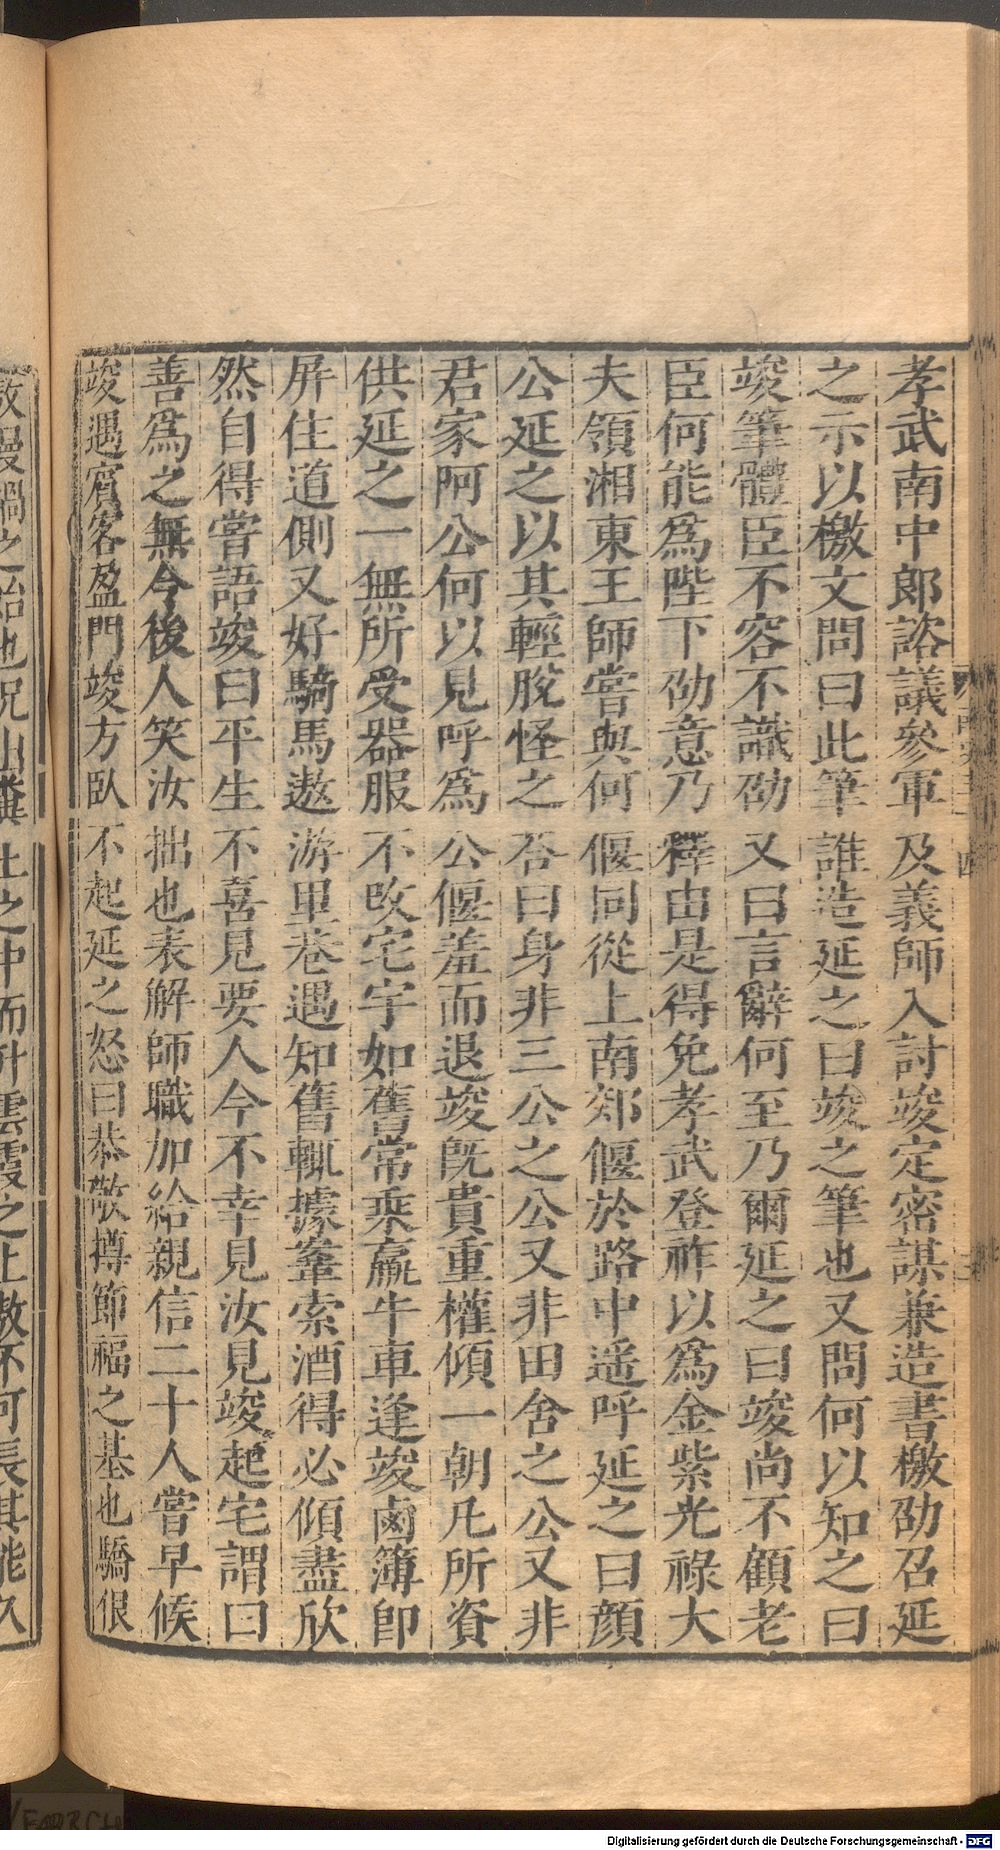 孝武南中郎諮議參軍及義師入討竣定密謀兼造書檄劭召延
之示以檄文問曰此筆誰造延之曰竣之筆也又問何以知之曰
竣筆體臣不容不識劭又曰言辭何至乃爾延之曰竣尚不顧老
臣何能爲陛下劭意乃釋由是得免孝武登祚以爲金紫光祿大
夫領湘東王師嘗與何偃同從上南郊偃於路中遥呼延之曰顔
公延之以其輕脫怪之荅曰身非三公之公又非田舍之公又非
君家阿公何以見呼爲公偃羞而退竣既貴重權傾一朝凡所資
供延之一無所受器服不改宅宇如舊常乘羸牛車逢竣鹵簿卽
屏住道側又好騎馬遨游里巷遇知舊輒據鞌索酒得必傾盡欣
然自得嘗語竣曰平生不喜見要人今不幸見汝見竣起宅謂曰
善爲之無令後人笑汝拙也表解師職加給親信二十人嘗早候
竣遇賓客盈門竣方臥不起延之怒曰恭敬撙節福之基也驕佷
傲慢禍之始也況出糞土之中而升雲霞之上傲不可長其能久
Digitalisierung gefördert durch die Deutsche Forschungsgemeinschaft - DFG